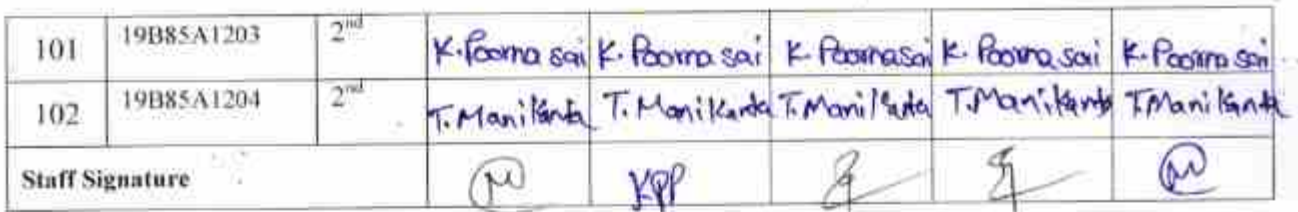 101 19B85A1203 2nd K. Poorna sai K. Poorna sai K. Poorna sai K. Poorna sai K. Poorna sai
102 19B85A1204 2nd T. Manikanta T. Manikanta T. Manikanta T. Manikanta T. Manikanta
Staff Signature KPP